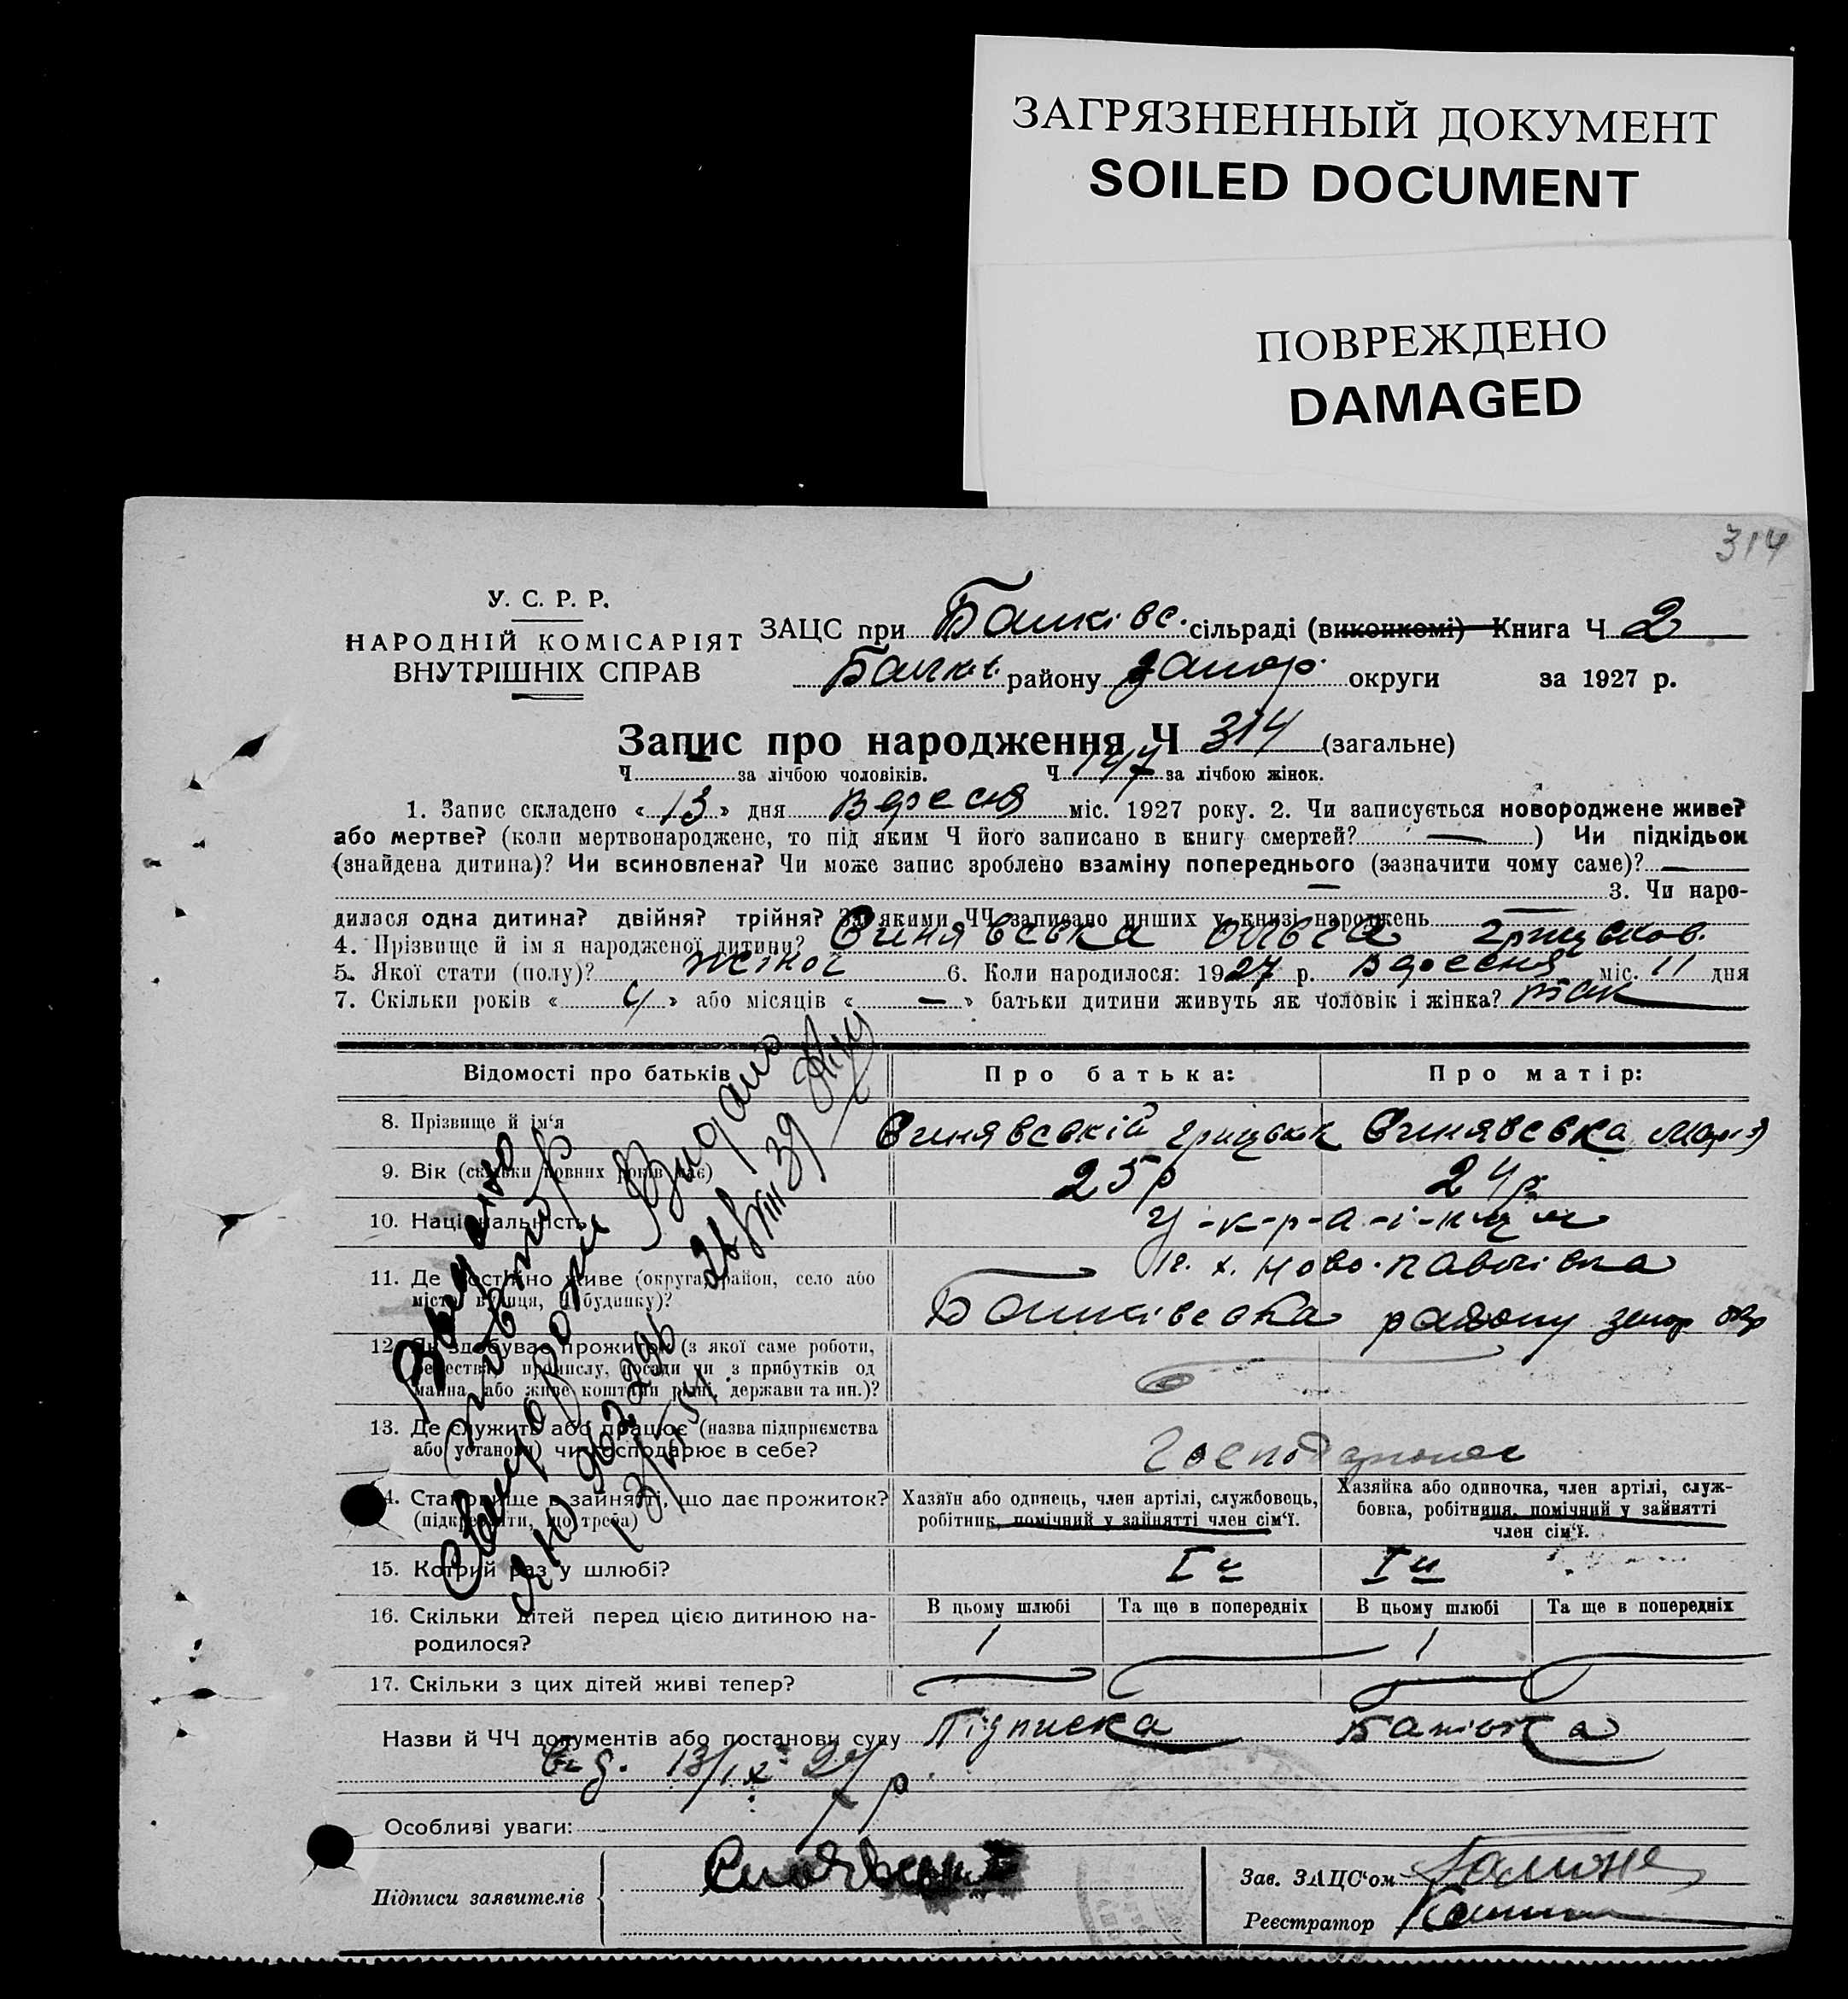 ЗАГРЯЗНЕННЫЙ ДОКУМЕНТ
SOILED DOCUMENT
ПОВРЕЖДЕНО
DAMAGED
314
У. С. Р. Р.
НАРОДНІЙ КОМІСАРІЯТ
ВНУТРІШНІХ СПРАВ
ЗАЦС при сільраді (виконкомі) Книга Ч 2
району Запор. округи за 1927 р.
Запис про народження Ч 314 (загальне)
Ч — за лічбою чоловіків. Ч 147 за лічбою жінок.
1. Запис складено «13» дня Вересня міс. 1927 року. 2. Чи записується новороджене живе?
або мертве? (коли мертвонароджене, то під яким Ч його записано в книгу смертей? —) Чи підкідьок
(знайдена дитина)? Чи всиновлена? Чи може запис зроблено взаміну попереднього (зазначити чому саме)? —
— 3. Чи наро-
дилася одна дитина? двійня? трійня? За якими ЧЧ записано инших у книзі народжень —
4. Прізвище й ім я народженої дитини? Синявська Ольга
5. Якої стати (полу)? жіноі 6. Коли народилося: 1927 р. Вересня міс. 11 дня
7. Скільки років «4» або місяців «—» батьки дитини живуть як чоловік і жінка? так
Відомості про батьків
Про батька:
Про матір:
8. Прізвище й ім'я Синявській Грицько Синявська Марія
9. Вік (скільки повних років має) 25 р 24 р
10. Національність У-к-р-а-ї-н-ц-і
11. Де постійно живе (округа, район, село або
місто, вулиця, Ч будинку)? х. Ново-Павлівка
району запор окр
12. Як здобуває прожиток (з якої саме роботи,
ремества, промислу, посади чи з прибутків од
майна, або живе коштами рідні, держави та ин.)?
13. Де служить або працює (назва підприємства
або установи) чи господарює в себе?
14. Становище в зайнятті, що дає прожиток?
(підкреслити, що треба)
Хазяїн або одинець, член артілі, службовець,
робітник, помічний у зайнятті член сім'ї.
Хазяйка або одиночка, член артілі, служ-
бовка, робітниця, помічний у зайнятті
член сім'ї.
15. Котрий раз у шлюбі? I й I й
16. Скільки дітей перед цією дитиною на-
родилося?
В цьому шлюбі Та ще в попередніх В цьому шлюбі Та ще в попередніх
1 1
17. Скільки з цих дітей живі тепер?
Назви й ЧЧ документів або постанови суду Підписка Батька
від. 13/IX 27 р.
Особливі уваги:
Підписи заявителів
Зав. ЗАЦС'ом
Реєстратор